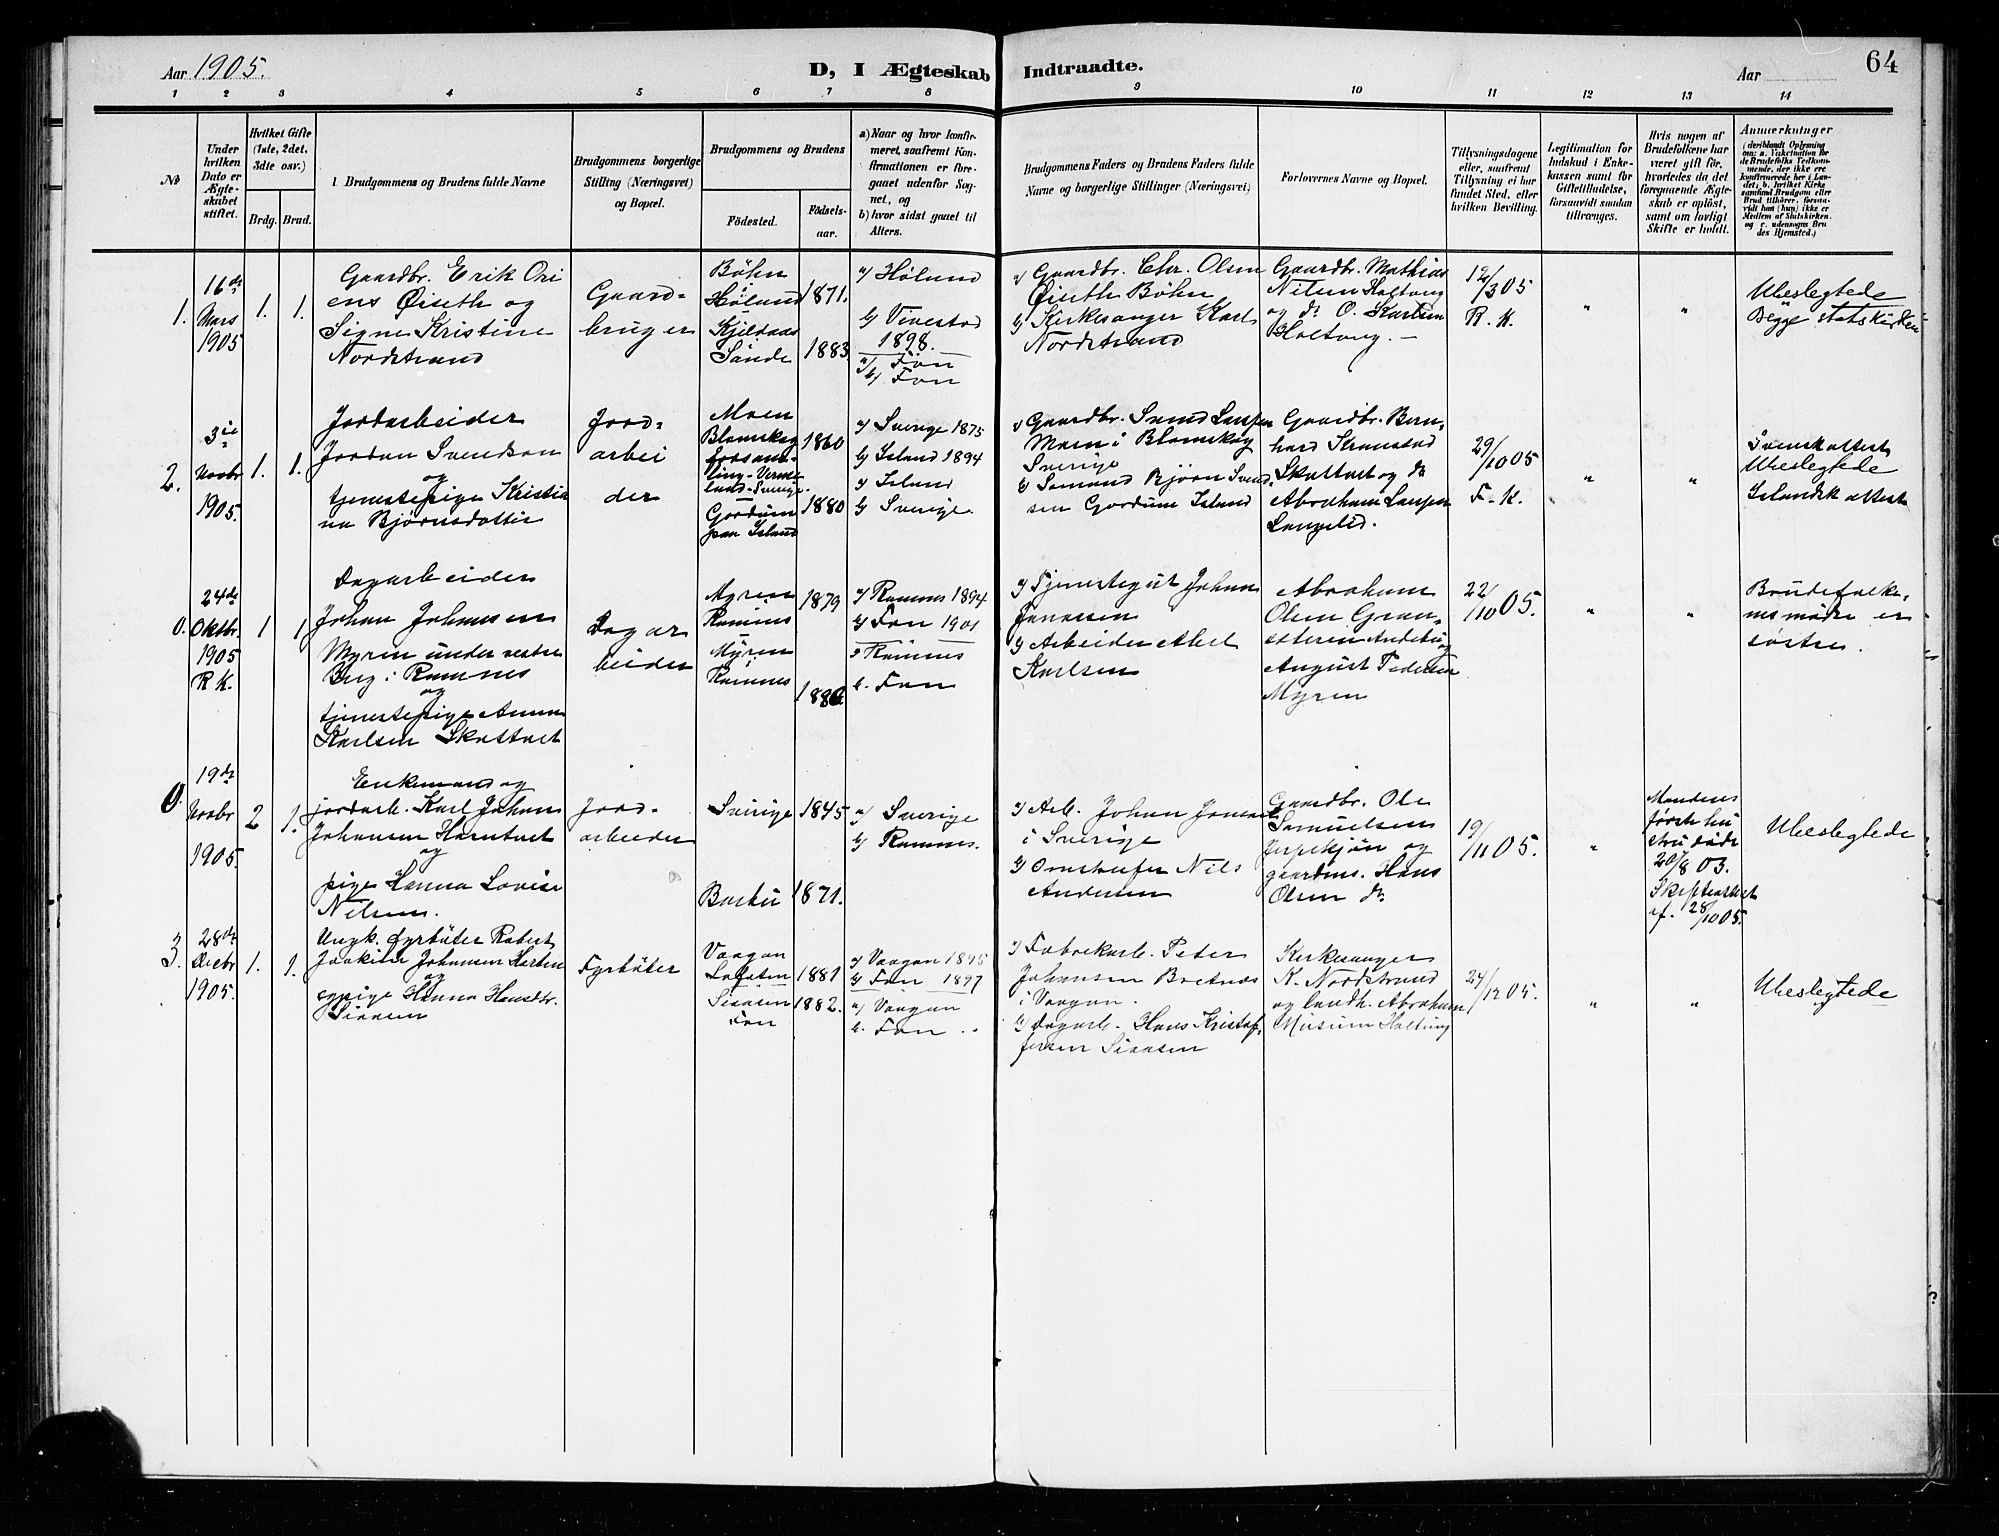 Aar 1905.
D, I Ægteskab Indtraadte.
Aar
64
1 2 3 4 5 6 7 8 9 10 11 12 13 14
№
Under
hvilken
Dato er
Ægte-
skabet
stiftet.
Hvilket Gifte
(1ste, 2det,
3die osv.)
Brdg. Brud.
1. Brudgommens og Brudens fulde Navne
Brudgommens borgerlige
Stilling (Næringsvei)
og Bopæl.
Brudgommens og Brudens
Fødested.
Fødsels-
aar.
a) Naar og hvor konfir-
meret, saafremt Kon-
firmationen er fore-
gaaet udenfor Sog-
net, og
b) hvor sidst gaaet til
Alters.
Brudgommens Faders og Brudens Faders fulde
Navne og borgerlige Stillinger (Næringsvei)
Forlovernes Navne og Bopæl.
Tillysningsdagene
eller, saafremt
Tillysning ei har
fundet Sted, efter
hvilken Bevilling.
Legitimation for
Indskud i Enke-
kassen samt for
Giftetilladelse,
forsaavidt saadan
tiltrænges.
Hvis nogen af
Brudefolkene har
været gift før,
hvorledes da det
foregaaende Ægte-
skab er opløst,
samt om lovligt
Skifte er holdt.
Anmerkninger
(deriblandt Oplysning
om: a. Vakcination for
de Brudefolks Vedkom-
mende, der ikke ere
konfirmerede her i Lan-
det; b. hvilket Kirke
samfund Brudgom eller
Brud tilhører, forsaa-
vidt han (hun) ikke er
Medlem af Statskirken
og c. udensogns Bru
des Hjemsted.)
1.
16de
Mars
1905
1. 1.
Gaardbr. Erik Ori
ens Øiseth og
Signe Kristine
Nordstrand
Gaard-
bruger
Bøhn
Høland
Kjeldaas
Sande
1871.
1883
a) Høland
b) Vivestad
1898.
a) Fon
b) Fon
a) Gaardbr. Chr. Olsen
Øiseth Bøhn
b) Kirkesanger Karl
Nordstrand
Gaardbr. Mathias
Nilsen Holtung
og do O. Karlsen
Holtung. —
12/3 05
R. K.
" "
Ubeslegtede
Begge statskirken
2.
3die
Novbr
1905.
1. 1.
Jordarbeider
Jordan Svendsen
og
tjenestepige Kristia
na Bjørnsdatter
Jord-
arbei
der
Moen
Blomskog
Verme
land-Sverige.
Island
1860
1880
a) Sverige 1875
b) Island 1894
a) Island
b) Sverige.
a) Gaardbr. Svend
Moen i Blomskog
Sverige
b) Bjørn Svend-
sen Gordum Island
Gaardbr. Bern-
hard
Skattvet og do
Abraham
29/10 05
F. K.
" "
Svensk attest
Ubeslegtede
Islandsk attest
0.
24de
Oktbr.
1905
R K.
1 1
Dagarbeider
Johan Johnsen
Myren under vestre
Berg i Ramnes
og
tjenestepige Anna
Karlsen Skattvet
Dagar
beider
Myren
Ramnes
Myren
Ramnes
1879
a) Ramnes 1894
b) Fon 1901
a Ramnes
b. Fon
a) Tjenestegut Johan
b) Arbeider Abel
Karlsen
Abraham
Olsen
Andebu
og
August Pedersen
Myren
22/10 05.
" "
Brudefolke-
nes mødre er
søstre.
0.
19de
Novbr
1905.
2 1.
Enkemand og
jordarb. Karl Johan
Johansen
og
pige Hanna Lovise
Nilsen.
Jord-
arbeider
Sverige
1845
1871.
a) Sverige
b) Ramnes.
a) Arb. Johan
i Sverige
b) Nils
Andersen
Gaardbr. Ole
Samuelsen
og
gaardms. Hans
Olsen do
19/11 05.
"
Mandens
første hu
stru døde
20/8 03.
Skifteattest
af. 28/10 05.
Ubeslegtede
3.
28de
Decbr
1905.
1. 1.
Ungk. fyrbøter Robert
Joakim Johansen
og
Hanna Hansdtr.
Fyrbøter
Vaagan
Lofoten
Fon
1881
1882.
a) Vaagan 1895
b) Fon 1897
a) Vaagan
b. Fon
a) Fabrekarb. Peter
Johansen Bretnes
i Vaagan.
b) Dagarb. Hans Kristof-
fersen
Kirkesanger
K. Nordstrand
og landh. Abraham
Holtung
24/12 05.
" "
Ubeslegtede